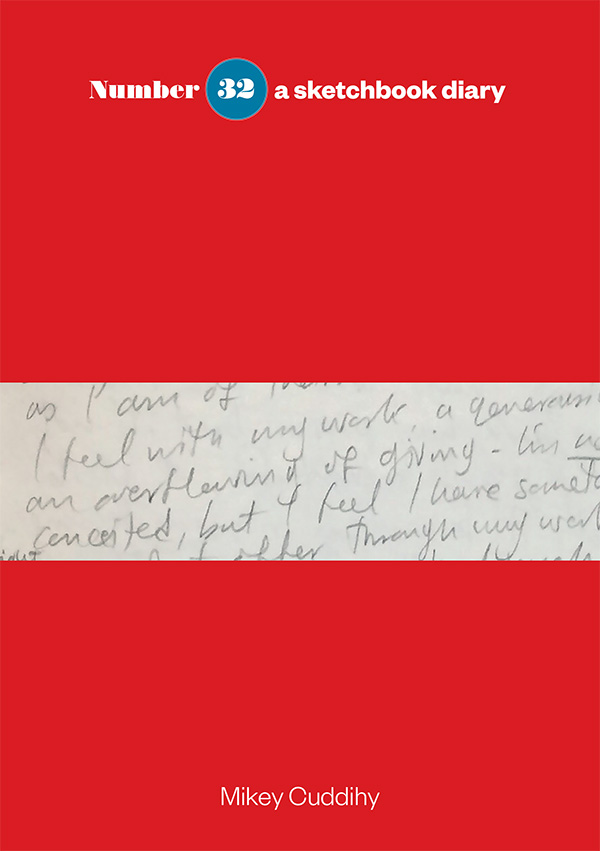 Number 32 a sketchbook diary
as I am of
I feel with my work, a
an overflowing of giving - I'm
conceited, but I feel I have
offer through my work
Mikey Cuddihy